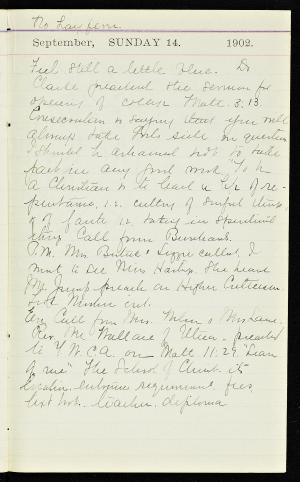 to Law firm.
September, SUNDAY 14. 1902.
Feel still a little blue. Dr
Clarke preached the Sermon for
opening of college Matt. 3:13.
Consecration is saying that you will
always take God's side in question
Should be ashamed not to take
part in any good work. To be
a Christian is to lead a life of re-
pentance, i.e. cutting of sinful things,
& of faith i.e. taking in Spiritual
things. Call from
P.M. Mrs & Lizzie called. I
went to see Miss Hastings. She heard
Mr. preach on Higher Criticism.
Eve Call from Mrs. & Mrs Lane.
Rev. Mr Wallace of Utica preached
to Y.W.C.A. on Matt 11:29 "Learn
of me" The School of Christ - its
location, entrance requirement, fees,
text book, teacher, diploma